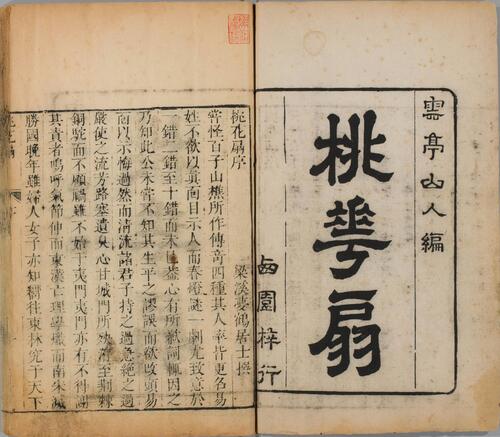 雲亭山人編
桃花扇
西園梓行
桃花扇序
梁溪夢鶴居士撰
嘗怪百子山樵所作傳奇四種其人率皆更名易
姓不欲以真面目示人而春燈謎一劇尤致意於
一錯二錯至十錯而未已蓋心有所歉詞輒因之
乃知此公未嘗不知其生平之謬誤而欲改頭易
面以示悔過然而清流諸君子持之過急絕之過
嚴使之流芳路塞遺臭心甘城門所殃洊至荊棘
銅駝而不顧禍雖不始于夷門夷門亦有不得謝
其責者嗚呼氣節伸而東漢亡理學熾而南宋滅
勝國晚年雖婦人女子亦知嚮往東林究于天下